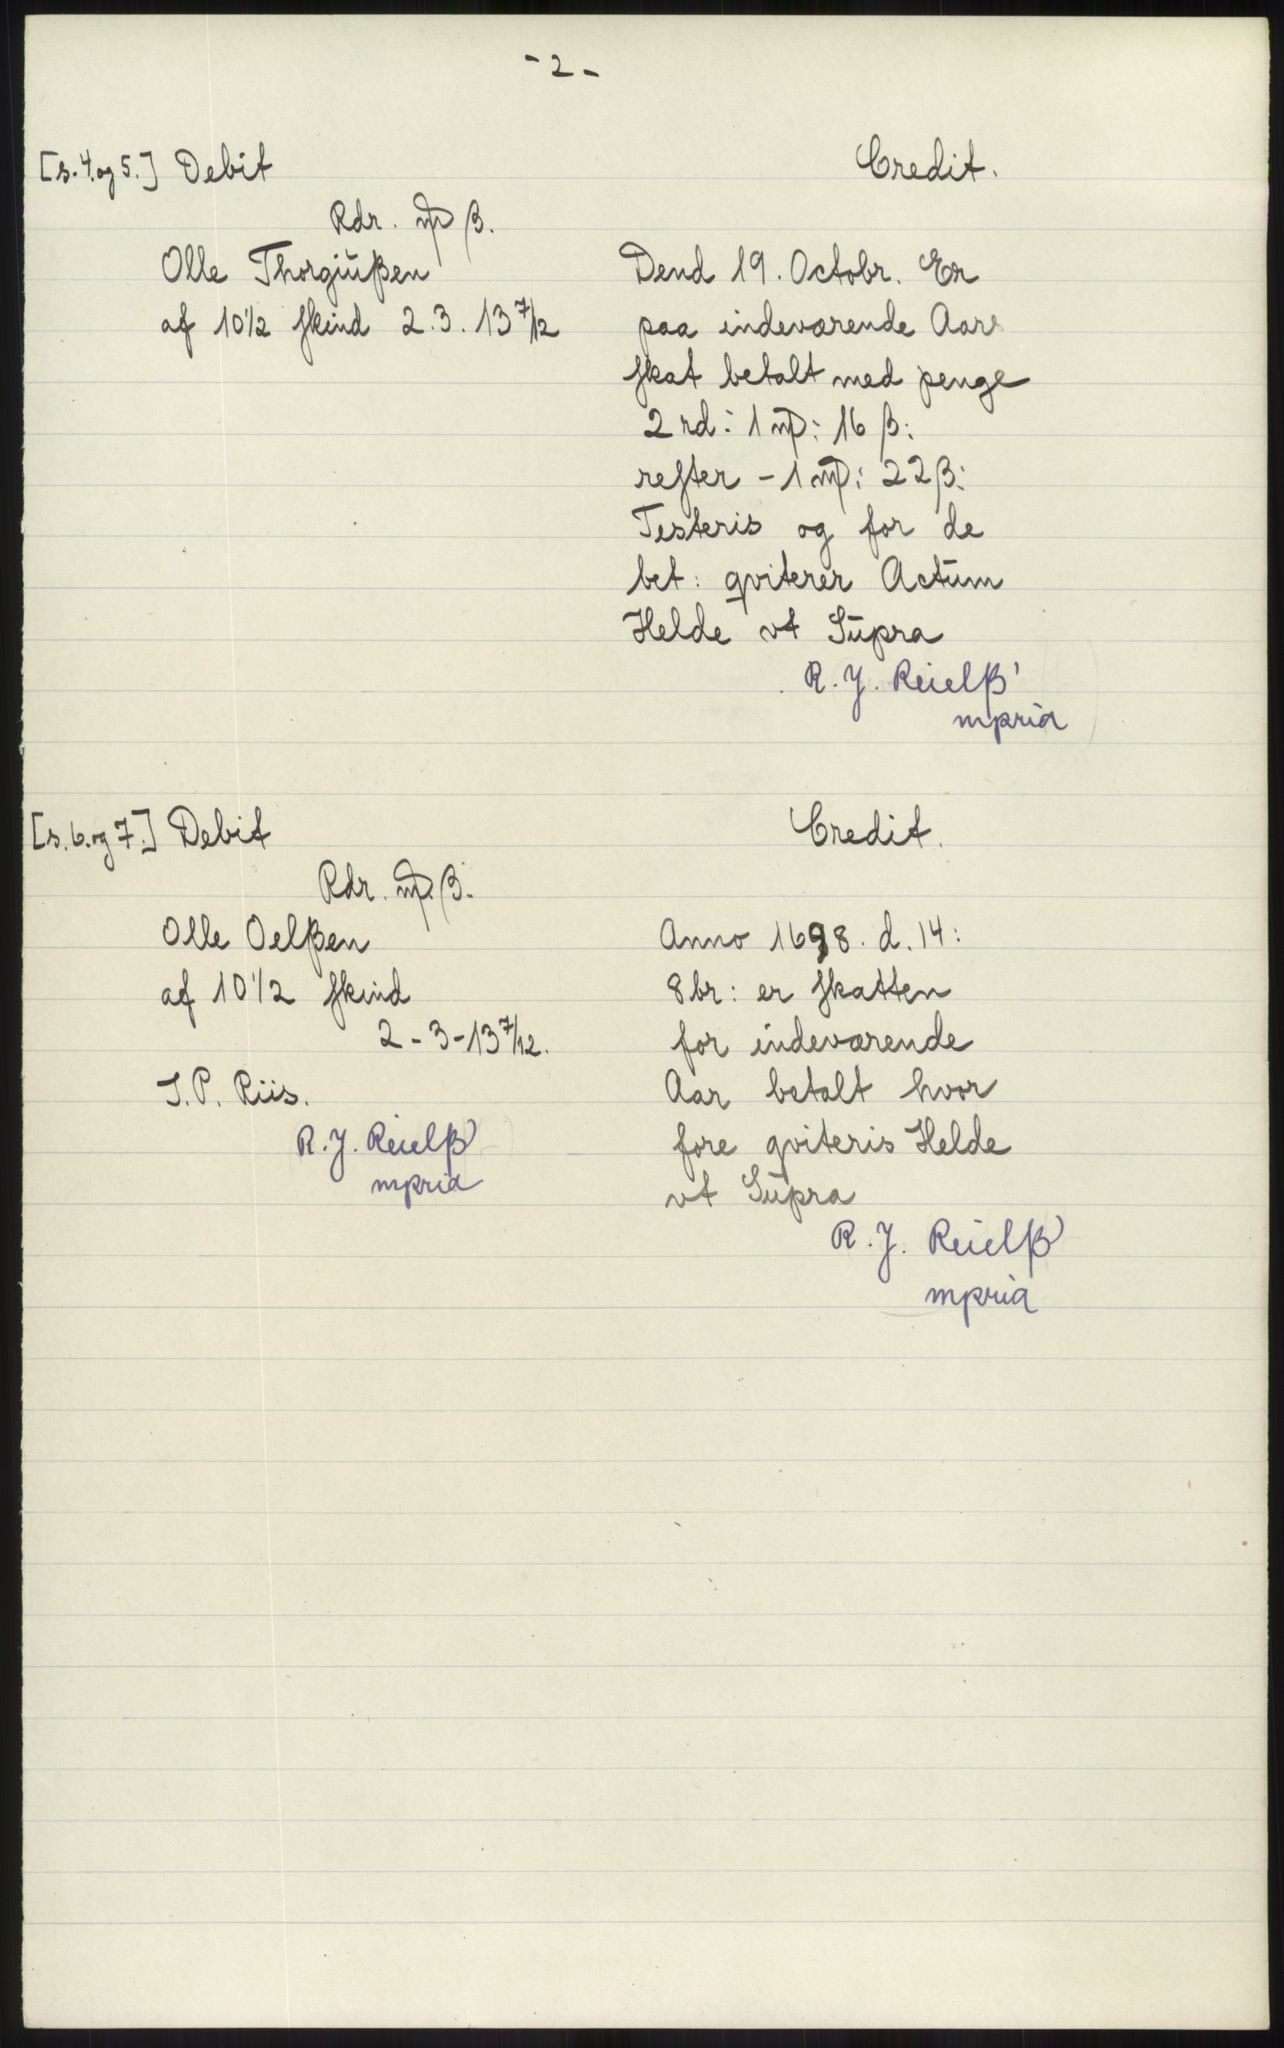 - 2 -
[s. 4. og 5.] Debit
Rdr. mͭ ß.
Olle Thorgiüßen
af 10 1/2 skind 2. 3. 13 7/12
Credit.
Dend 19. Octobr. Er
paa indeværende Aars
skat betalt med penge
2 rd: 1 mͭ: 16 ß:
rester - 1 mͭ: 22 ß:
Testeris og for de
bet: qviterer Actūm
Helde vt Sūpra
R. J. Reielß'
mpria
[s. 6. og 7.] Debit
Rdr. mͭ. ß.
Olle Oelßen
af 10 1/2 skind
2 - 3 - 13 7/12.
J. P. Riis.
R. J. Reielß'
mpria
Credit.
Anno 1698. d. 14:
8br: er skatten
for indeværende
Aar betalt hvor
fore qviteris Helde
vt Sūpra
R. J. Reielß'
mpria